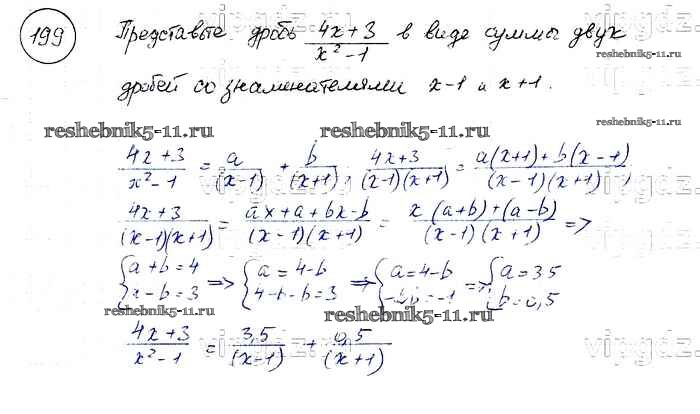 199
Представьте дробь (4x+3)/(x²-1) в виде суммы двух
дробей со знаменателями x-1 и x+1.
reshebnik5-11.ru
reshebnik5-11.ru
reshebnik5-11.ru
(4x+3)/(x²-1) = a/(x-1) + b/(x+1); (4x+3)/((x-1)(x+1)) = (a(x+1)+b(x-1))/((x-1)(x+1));
(4x+3)/((x-1)(x+1)) = (ax+a+bx-b)/((x-1)(x+1)) = (x(a+b)+(a-b))/((x-1)(x+1)) =>
{a+b=4 a-b=3 => {a=4-b 4-b-b=3 => {a=4-b -2b=-1 => {a=3,5 b=0,5
reshebnik5-11.ru
reshebnik5-11.ru
reshebnik5-11.ru
(4x+3)/(x²-1) = 3,5/(x-1) + 0,5/(x+1)